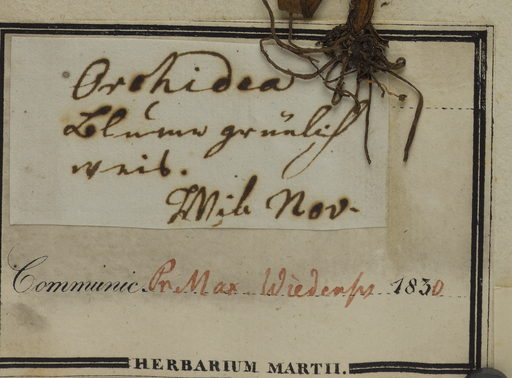 Orchidea
Blume grünlich
weis.
Mib Nov.
Communic. Pr. Max Wiedensis 1830
HERBARIUM MARTII.